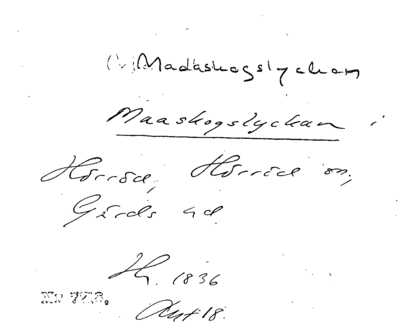 (V) Madaskogslyckan
Maaskogslyckan i
Hörröd, Hörröd sn,
Gärds hd.
Lh. 1836
Akt 18.